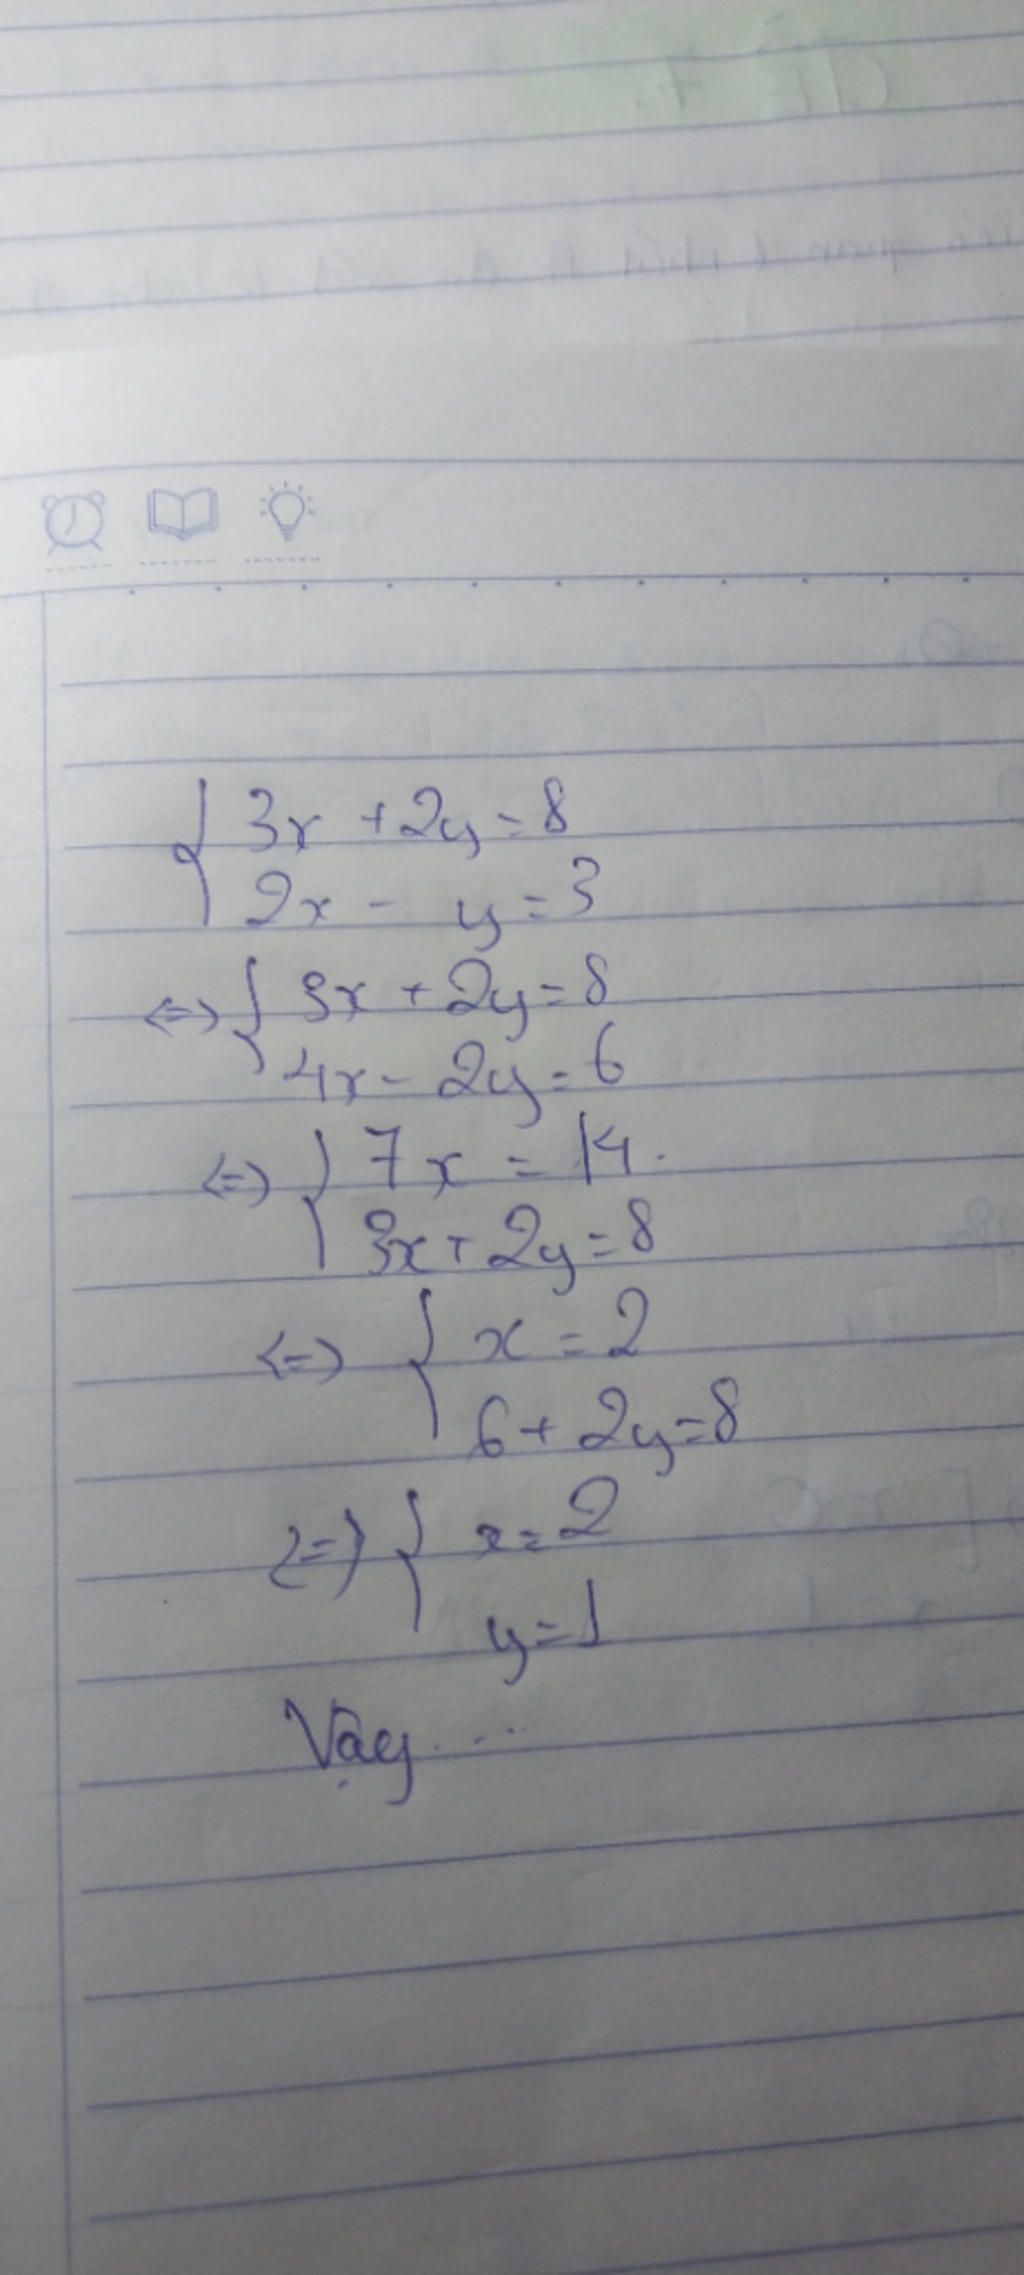 { 3x + 2y = 8
2x - y = 3
<=> { 3x + 2y = 8
4x - 2y = 6
<=> { 7x = 14.
3x + 2y = 8
<=> { x = 2
6 + 2y = 8
<=> { x = 2
y = 1
Vậy...